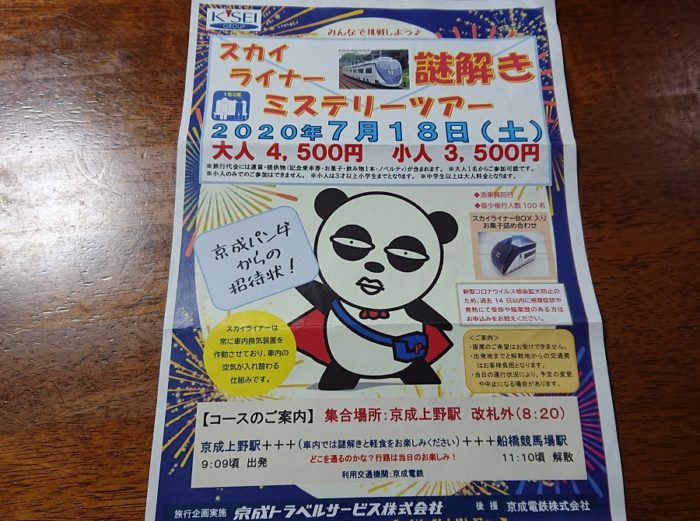 K'SEI
GROUP
みんなで挑戦しよう♪
スカイ
ライナー 謎解き
ミステリーツアー
2020年7月18日(土)
大人 4,500円 小人 3,500円
※旅行代金には運賃・提供物(記念乗車券・お菓子・飲み物1本・ノベルティ)が含まれます。 ※大人1名からご参加可能です。
※小人のみでのご参加はできません。 ※小人は3才以上小学生までとなります。 ※中学生以上は大人料金となります。
◆添乗員同行
◆最少催行人数100名
スカイライナーBOX入り
お菓子詰め合わせ
京成パンダ
からの
招待状!
新型コロナウイルス感染拡大防止の
ため、過去14日以内に感冒症状や
発熱にて受診や服薬歴のある方は
お申込みをお控えください。
スカイライナーは
常に車内換気装置を
作動させており、車内の
空気が入れ替わる
仕組みです。
P
<ご案内>
・座席のご希望はお受けできません。
・出発地までと解散地からの交通費
はお客様負担となります。
・当日の運行状況により、予定の変更
や中止になる場合があります。
【コースのご案内】 集合場所:京成上野駅 改札外(8:20)
京成上野駅+++(車内では謎解きと軽食をお楽しみください)+++船橋競馬場駅
9:09頃 出発 どこを通るのかな?行路は当日のお楽しみ! 11:10頃 解散
利用交通機関:京成電鉄
旅行企画実施 京成トラベルサービス株式会社 後援 京成電鉄株式会社